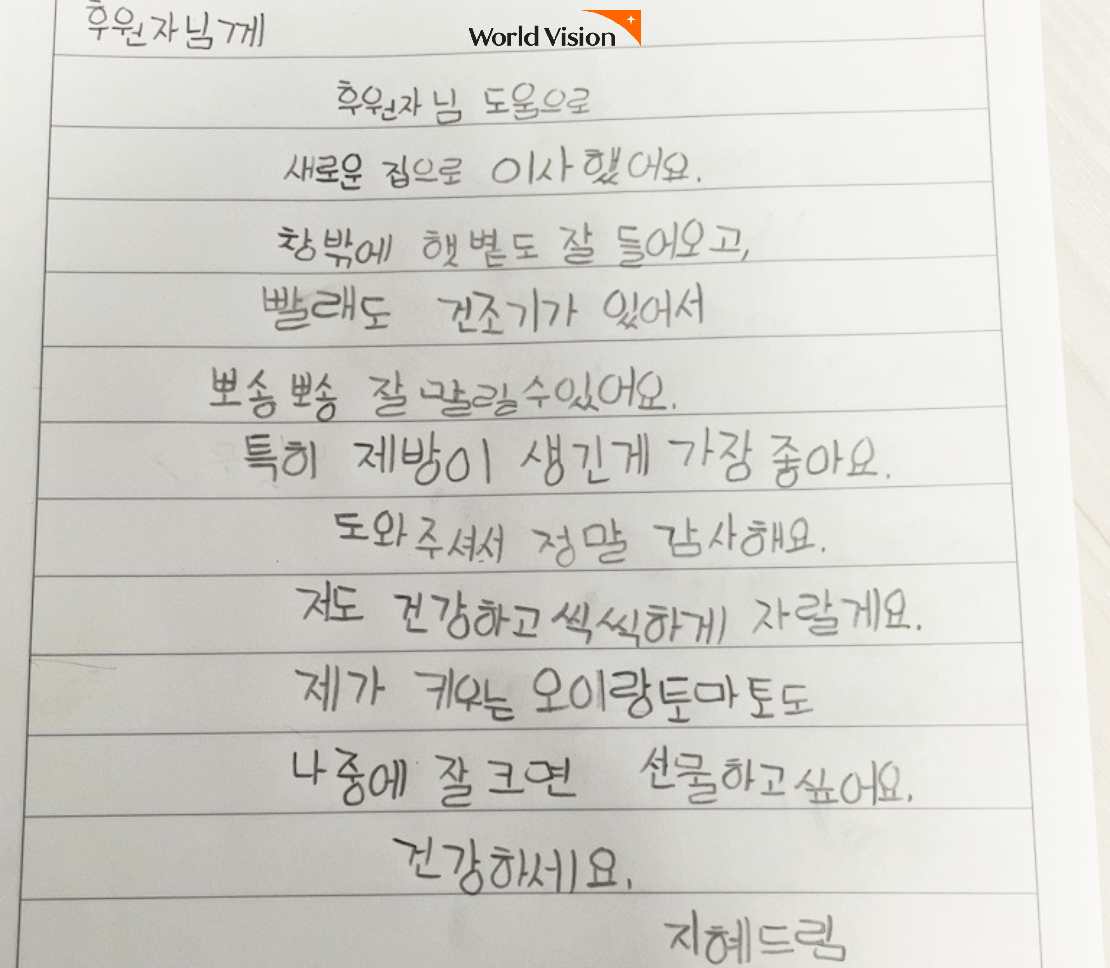 후원자님께
World Vision
후원자님 도움으로
새로운 집으로 이사했어요.
창밖에 햇볕도 잘 들어오고,
빨래도 건조기가 있어서
뽀송뽀송 잘 말릴수있어요.
특히 제방이 생긴게 가장 좋아요.
도와주셔서 정말 감사해요.
저도 건강하고 씩씩하게 자랄게요.
제가 키우는 오이랑토마토도
나중에 잘크면 선물하고싶어요.
건강하세요.
지혜드림